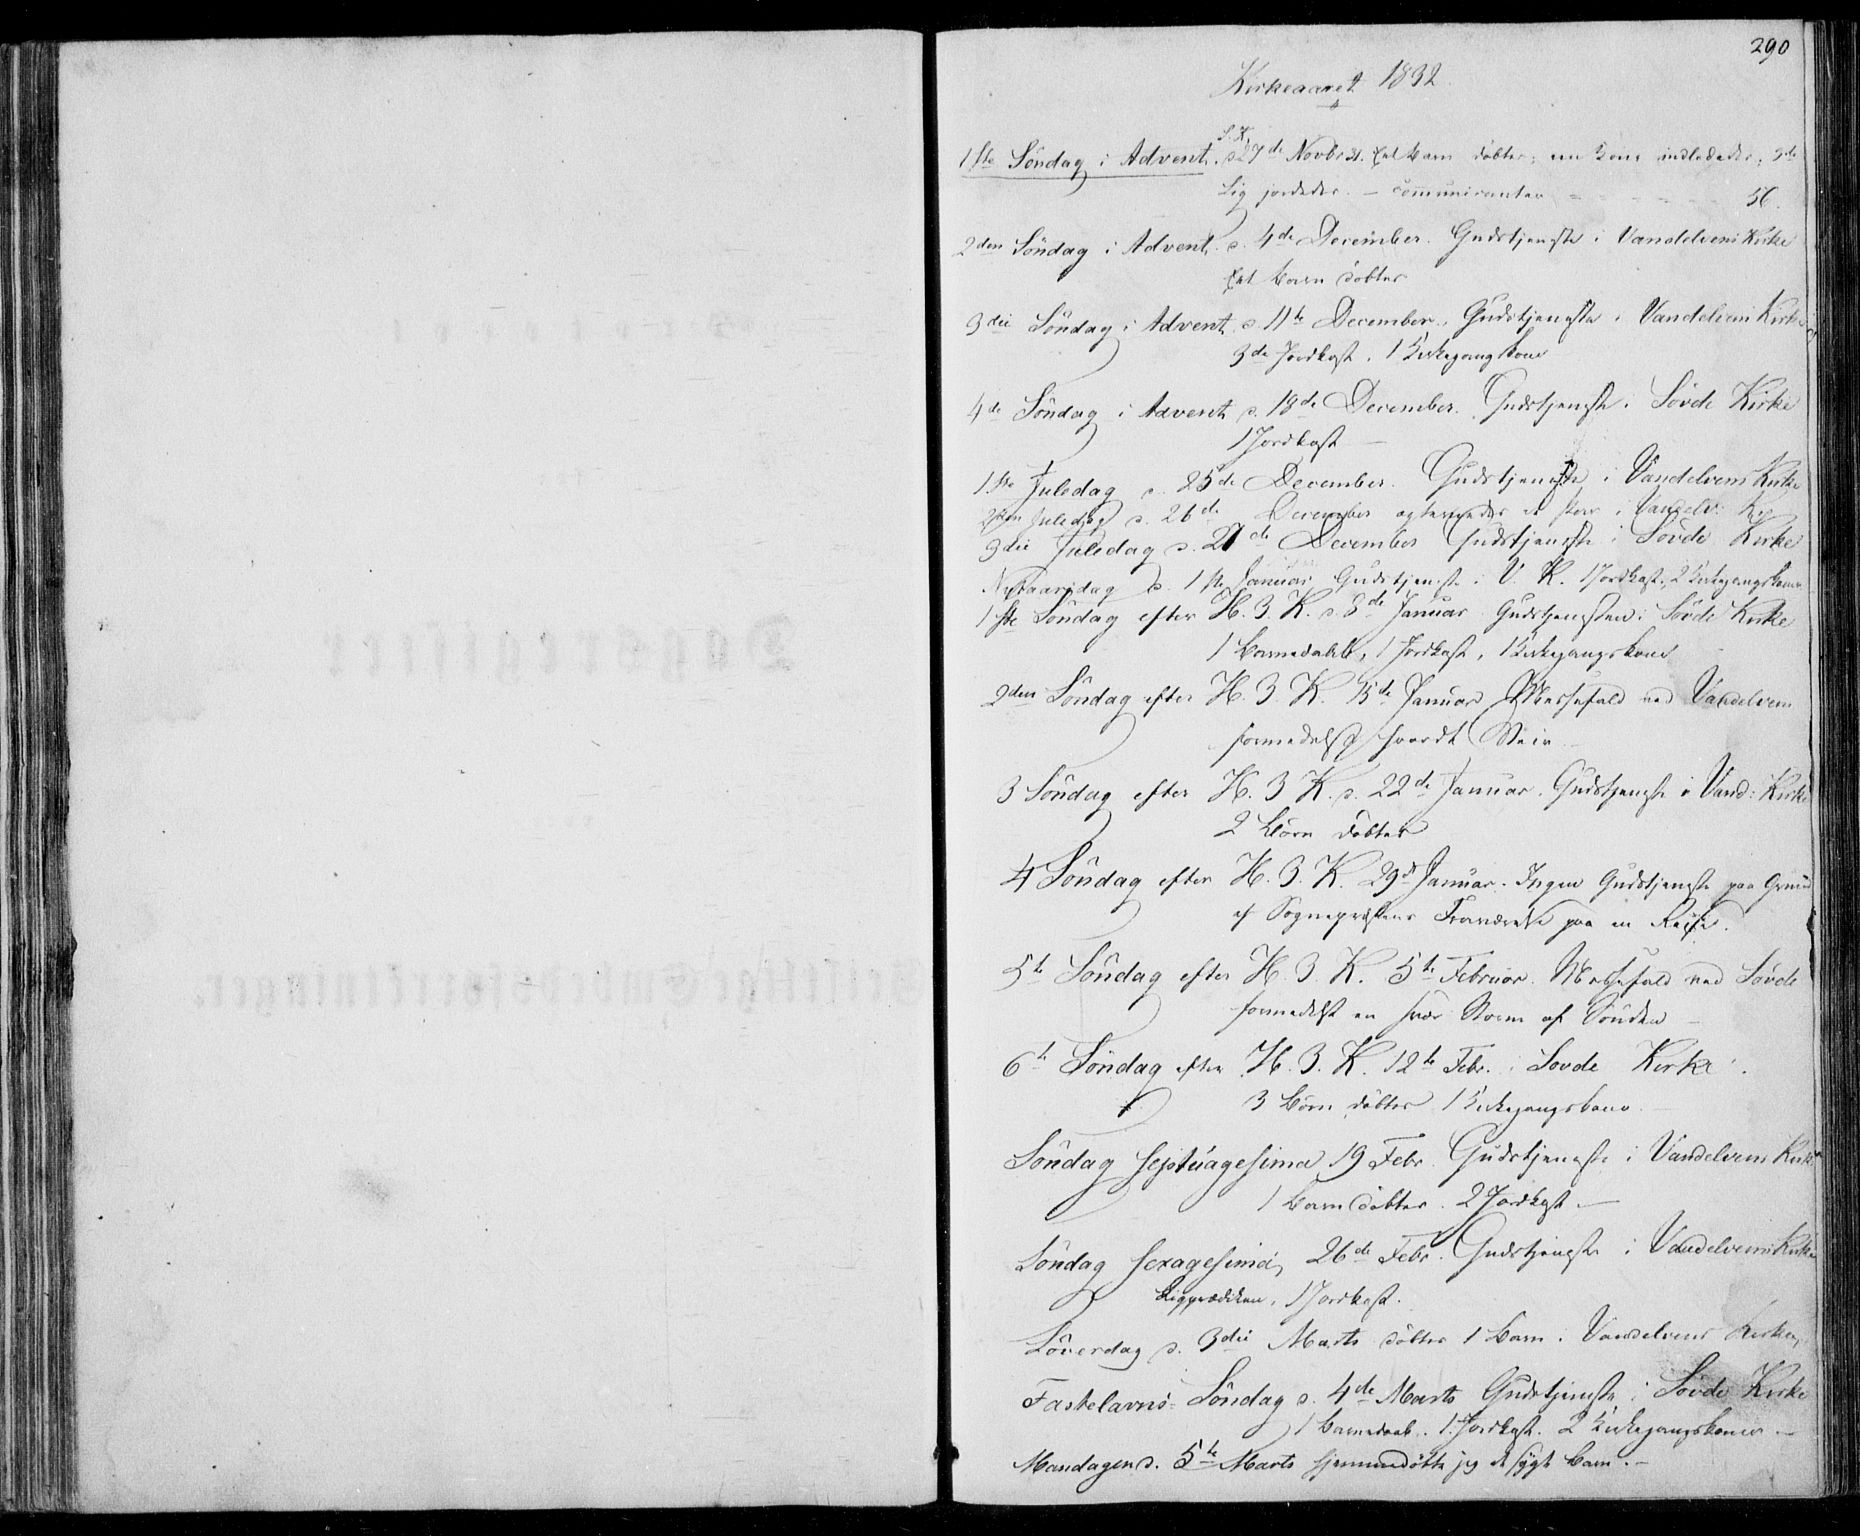 290
Kirkeaaret 1832.
S. K.
1ste Söndag i Advent. d 27de Novbr 31. Eet Barn döbtes; een Kone indlededes, 3de
Lig jordedes. – Communicanter 56.
2den Söndag i Advent. d. 4de December. Gudstjeneste i Vandelvens Kirke
Eet Barn döbtes
3die Söndag i Advent d. 11te December. Gudstjeneste i Vandelvens Kirke
3de Jordkast. 1 Kirkegangskone
4de Söndag i Advent d. 18de December. Gudstjeneste i Sövde Kirke
1 Jordkast –
1ste Juledag d. 25de December. Gudstjeneste i Vandelvens Kirke
2den Juledag d. 26de December et Par i Vandelv: K.
3die Juledag d. 27de December Gudstjeneste i Sövde Kirke
Nytaarsdag d. 1ste Januar Gudstjeneste i V. K. 1 Jordkast, 2 Kirkegangskoner
1ste Söndag efter H. 3. K. d. 8de Januar Gudstjenesten i Sövde Kirke
1 Barnedaab, 1 Jordkast, 1 Kirkegangskone
2den Söndag efter H. 3. K. 15de Januar Messefald ved Vandelven
formedelst haardt Veir
3 Söndag efter H. 3 K. d. 22de Januar. Gudstjeneste i Vand: Kirke
2 Börn döbtes
4 Söndag efter H. 3. K. 29de Januar. Ingen Gudstjeneste paa Grund
af Sognepræstens Fraværelse paa en Reise.
5te Söndag efter H. 3. K. 5te Februar. Messefald ved Sövde
formedelst en svær Storm af Sönden –
6te Söndag efter H. 3. K. 12te Febr. i Sovde Kirke.
3 Börn döbtes 1 Kirkegangskone.
Söndag Septuagesima 19 Febr. Gudstjeneste i Vandelvens Kirke
1 Barn döbtes. 2 Jordkast –
Söndag Sexagesima, 26de Febr. Gudstjeneste i Vandelvens Kirke
Ligprædiken, 1 Jordkast.
Löverdag d. 3die Marts döbtes 1 Barn i Vandelvens Kirke,
Fastelavns-Söndag d. 4de Marts Gudstjeneste i Sövde Kirke
1 Barnedaab. 1. Jordkast. 2 Kirkegangskoner –
Mandagen d. 5te Marts hjemmedöbte jeg et sygt Barn. –
Dagsregister
Geistlige Embedsforretninger.